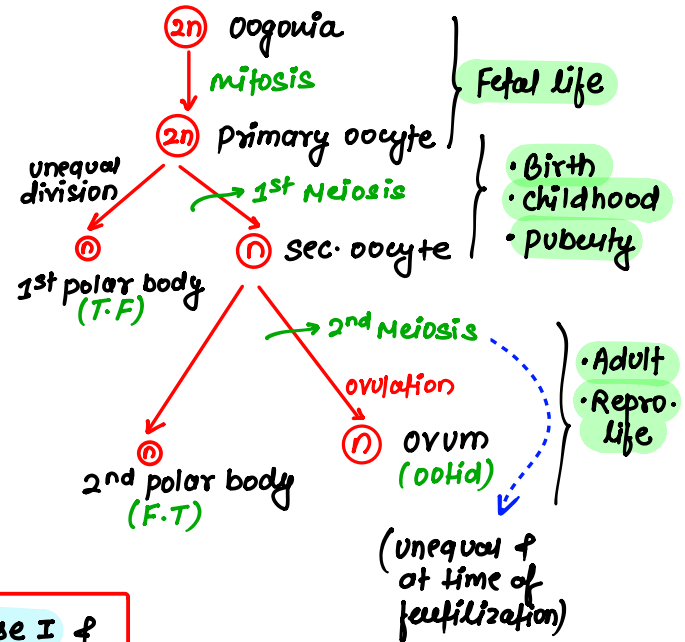 2n oogonia
mitosis
Fetal life
2n primary oocyte
unequal
division
1st Meiosis
• Birth
• childhood
• puberty
n
n sec. oocyte
1st polar body
(T.F)
2nd Meiosis
ovulation
• Adult
• Repro.
life
n
n ovum
(ootid)
2nd polar body
(F.T)
(unequal &
at time of
fertilization)
se I &